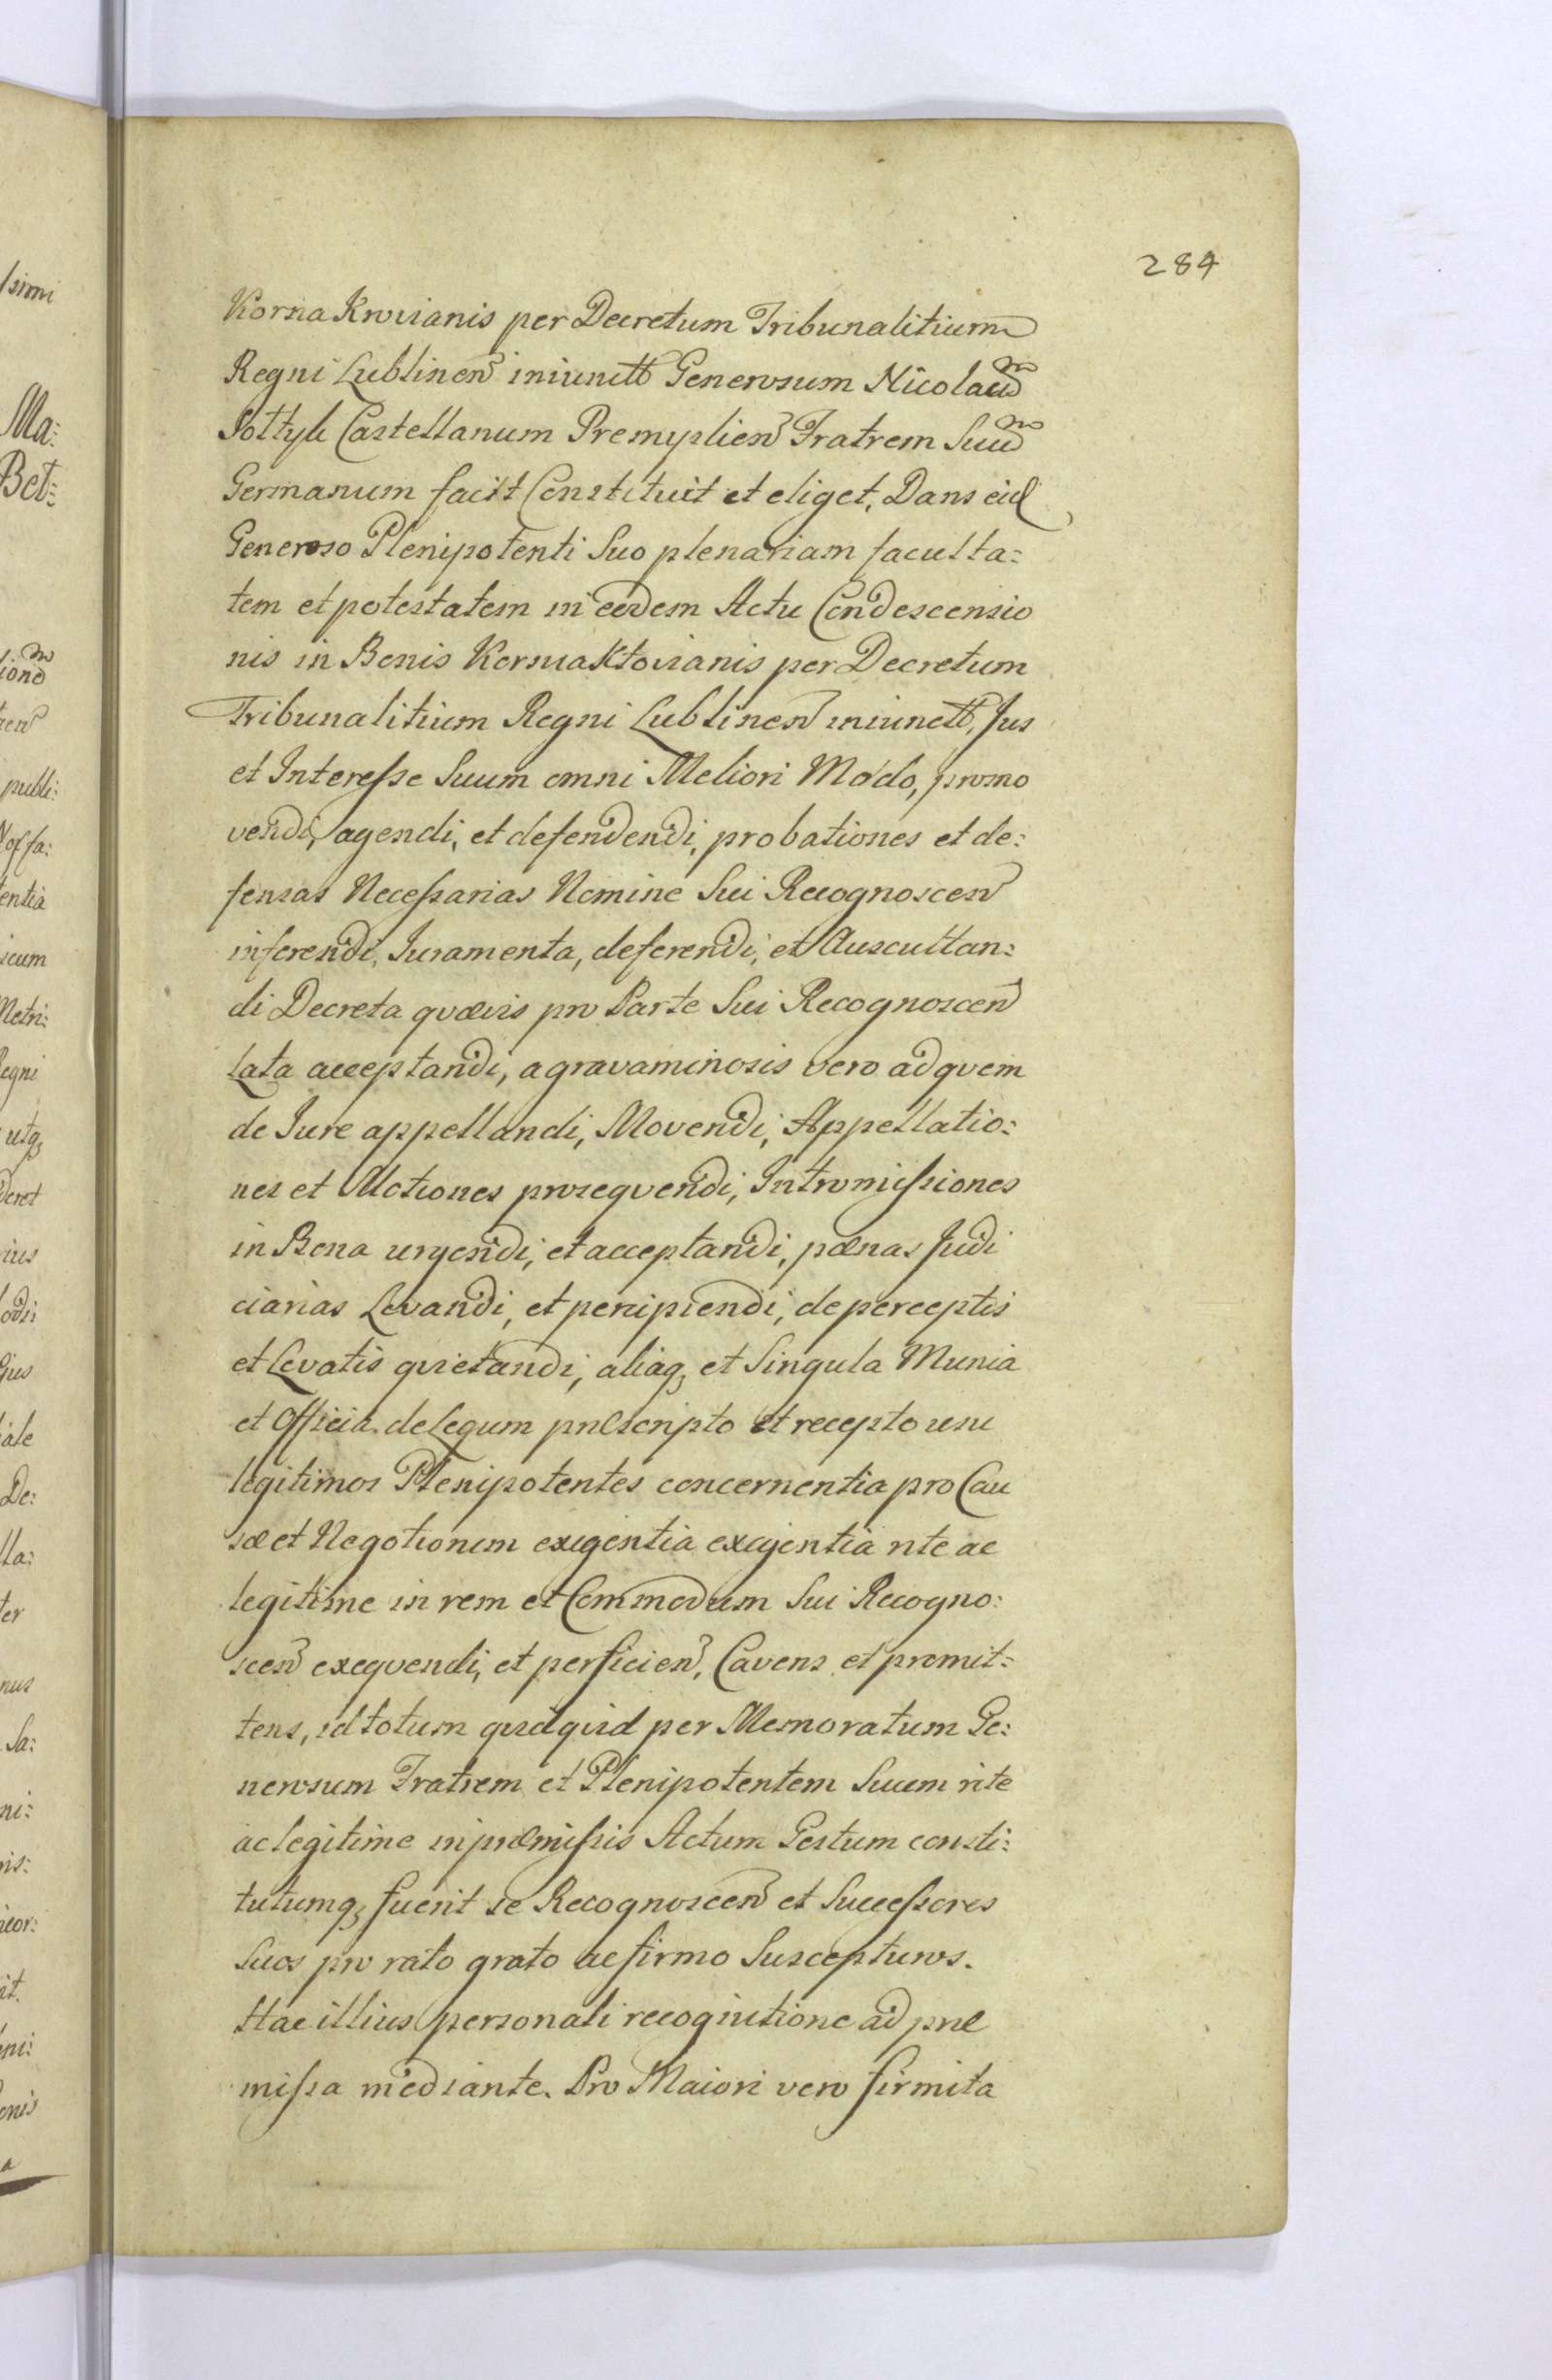 284
Korna Krwianis per Decretum Tribunalitium
Regni Lublinen iniunctt Generosum Nicolaum
Pottyk Castellanum Premyslien Fratrem Suum
Germanum facit Constituit et eliget, Dans eid
Generoso Plenipotenti Suo plenariam faculta=
tem et potestatem in eodem Actu Condescensio
nis in Bonis Kornaktovianis per Decretum
Tribunalitium Regni Lublinen iniunctt, Jus
et Interesse Suum omni Meliori Modo, promo
vendi, agendi, et defendendi, probationes et de=
fensas Necessarias Nomine Sui Recognoscen
inferendi, Juramenta, deferendi, et Auscultan=
di Decreta quævis pro Parte Sui Recognoscen
Lata acceptandi, a gravaminosis vero ad quem
de Jure appellandi, Movendi, Appellatio=
nes et Motiones prosequendi, Intromissiones
in Bona urgendi, et acceptandi, pœnas Judi
ciarias Levandi, et percipiendi, de perceptis
et Levatis quietandi, aliaq, et Singula Munia
et Officia de Legum præscripto et recepto usu
legitimos Plenipotentes concernentia pro Cau
sæ et Negotiorum exigentia exigentia rite ac
legitime in rem et Commodum Sui Recogno=
scen exequendi, et perficien, Cavens et promit=
tens, id totum quidquid per Memoratum Ge=
nerosum Fratrem et Plenipotentem Suum rite
ac legitime in præmissis Actum Gestum consti=
tutumq, fuerit se Recognoscen et Successores
Suos pro rato grato ac firmo Suscepturos.
Hac illius personali recognitione ad præ
missa mediante. Pro Maiori vero firmita